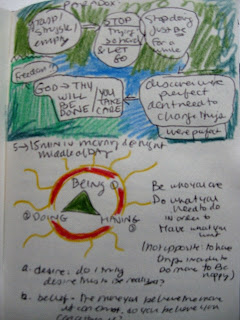 Paradox
grasp/
struggle/
empty
STOP
trying
so hard
& LET
GO
Stop doing
just be
for a
while
Freedom
GOD → THY
WILL
BE
DONE /
YOU
TAKE
CARE
discover we're
perfect
dont need to
change things
we're perfect
5 → 15 min in morning or night
middle of day
BEING ①
② DOING
HAVING
③
Be who you are
Do what you
need to do
in order to
Have what you
want
(Not opposite: to have
things in order to
Do more to Be
happy)
a. desire: do I truly
desire this to be realized?
b. belief - the more you believe the more
it can come, so do you believe you